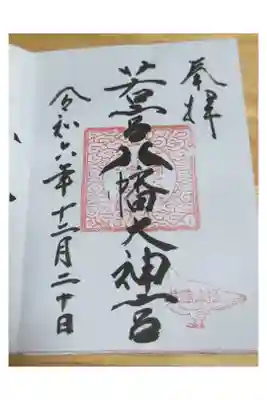 奉拝
若宮八幡大神宮
令和六年十二月二十日